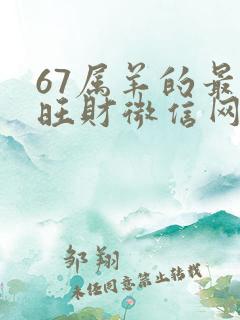 67属羊的最
旺财微信网
邹翔
未经同意禁止转载